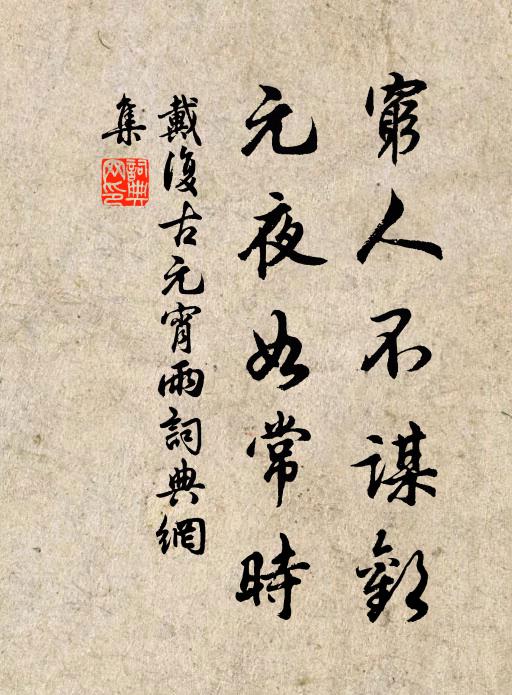 窮人不謀歡
元夜如常時
戴復古元宵雨詞典網
集
詞典
网印